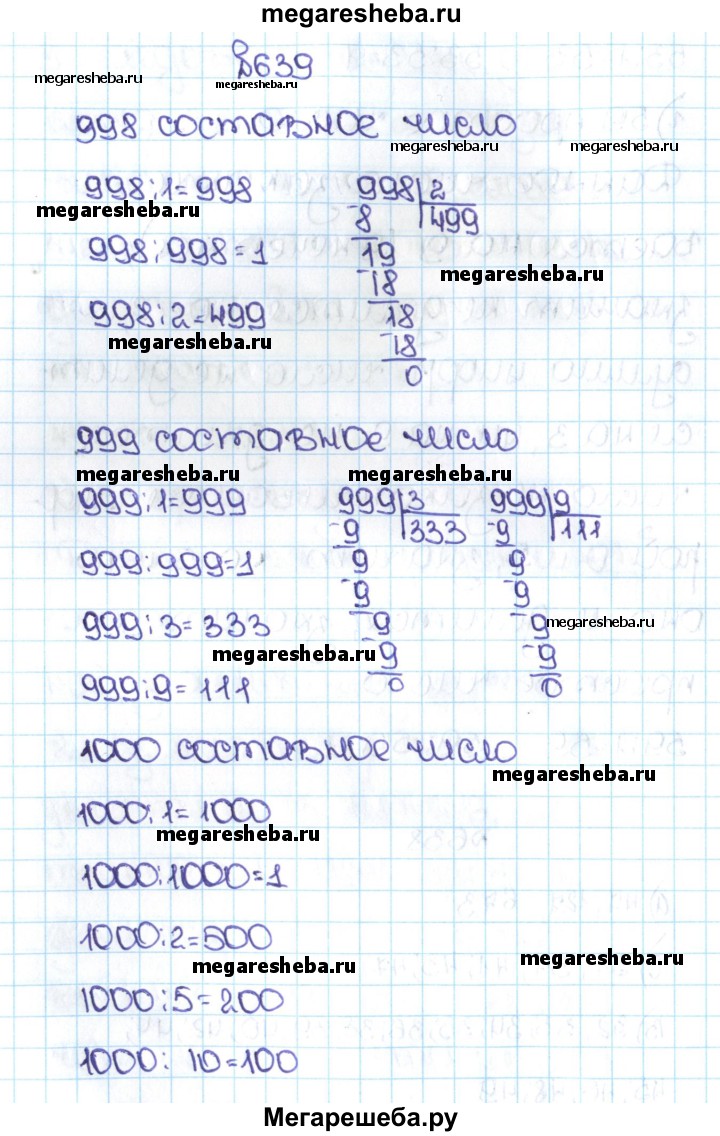 megaresheba.ru
№639
megaresheba.ru megaresheba.ru
998 составное число
megaresheba.ru megaresheba.ru
998:1=998 998|2
megaresheba.ru
-8 499
998:998=1 19
megaresheba.ru
-18
998:2=499 18
megaresheba.ru
-18
0
999 составное число
megaresheba.ru megaresheba.ru
999:1=999 999|3 999|9
-9 333 -9 111
999:999=1 9 9
-9 -9
999:3=333 9 9
megaresheba.ru
megaresheba.ru
-9 -9
999:9=111 0 0
1000 составное число
megaresheba.ru
1000:1=1000
megaresheba.ru
1000:1000=1
1000:2=500
megaresheba.ru
megaresheba.ru
1000:5=200
1000: 10=100
Мегарешеба.ру